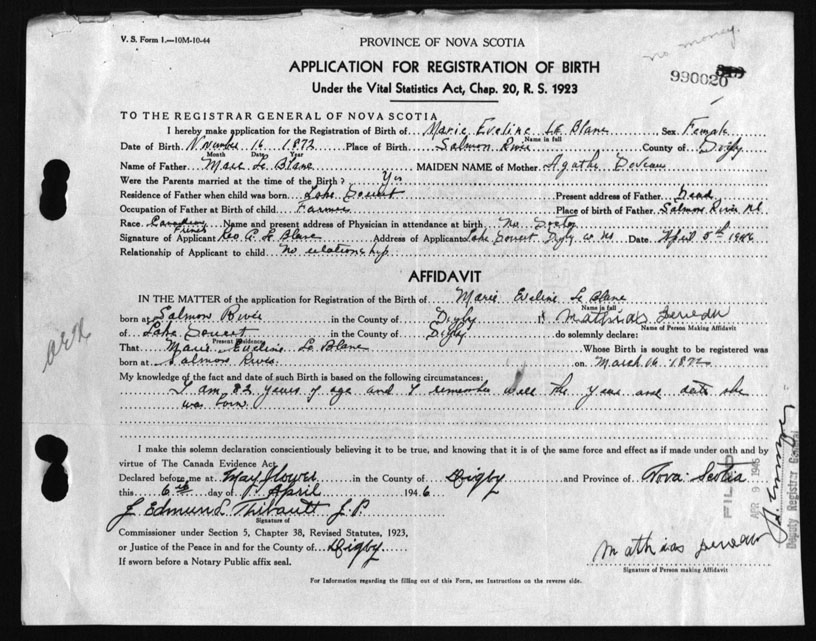 V. S. Form 1.—10M-10-44
PROVINCE OF NOVA SCOTIA
no money.
990020
APPLICATION FOR REGISTRATION OF BIRTH
Under the Vital Statistics Act, Chap. 20, R. S. 1923
TO THE REGISTRAR GENERAL OF NOVA SCOTIA
I hereby make application for the Registration of Birth of Marie Eveline Le Blanc Sex Female
Name in full
Date of Birth 16 1872 Place of Birth Salmon River County of Digby
Month Date Year
Name of Father Marc Le Blanc MAIDEN NAME of Mother Agathe Deveau
Were the Parents married at the time of the Birth? Yes
Residence of Father when child was born Lake Present address of Father Dead
Occupation of Father at Birth of child Farmer Place of birth of Father Salmon River NS
Race Canadian French Name and present address of Physician in attendance at birth No Doctor
Signature of Applicant Leo A. Le Blanc Address of Applicant Lake Digby Co NS Date April 5th 1946
Relationship of Applicant to child No relationship
AFFIDAVIT
IN THE MATTER of the application for Registration of the Birth of Marie Eveline Le Blanc
Name in full
born at Salmon River in the County of Digby I Mathias
Name of Person making Affidavit
of Lake in the County of Digby do solemnly declare:
Present Residence
That Marie Eveline Le Blanc Whose Birth is sought to be registered was
born at Salmon River on March 16 1872
My knowledge of the fact and date of such Birth is based on the following circumstances:
I am 82 years of age and I remember well the year and date she
was born
I make this solemn declaration conscientiously believing it to be true, and knowing that it is of the same force and effect as if made under oath and by
virtue of The Canada Evidence Act.
Declared before me at Mayflower in the County of Digby and Province of Nova Scotia
this 6th day of April 1946
J Edmund Thibault J.P.
Signature of
Commissioner under Section 5, Chapter 38, Revised Statutes, 1923,
or Justice of the Peace in and for the County of Digby
If sworn before a Notary Public affix seal.
Mathias
Signature of Person making Affidavit
For Information regarding the filling out of this Form, see Instructions on the reverse side.
FILED
APR 9 1946
Deputy Registrar General